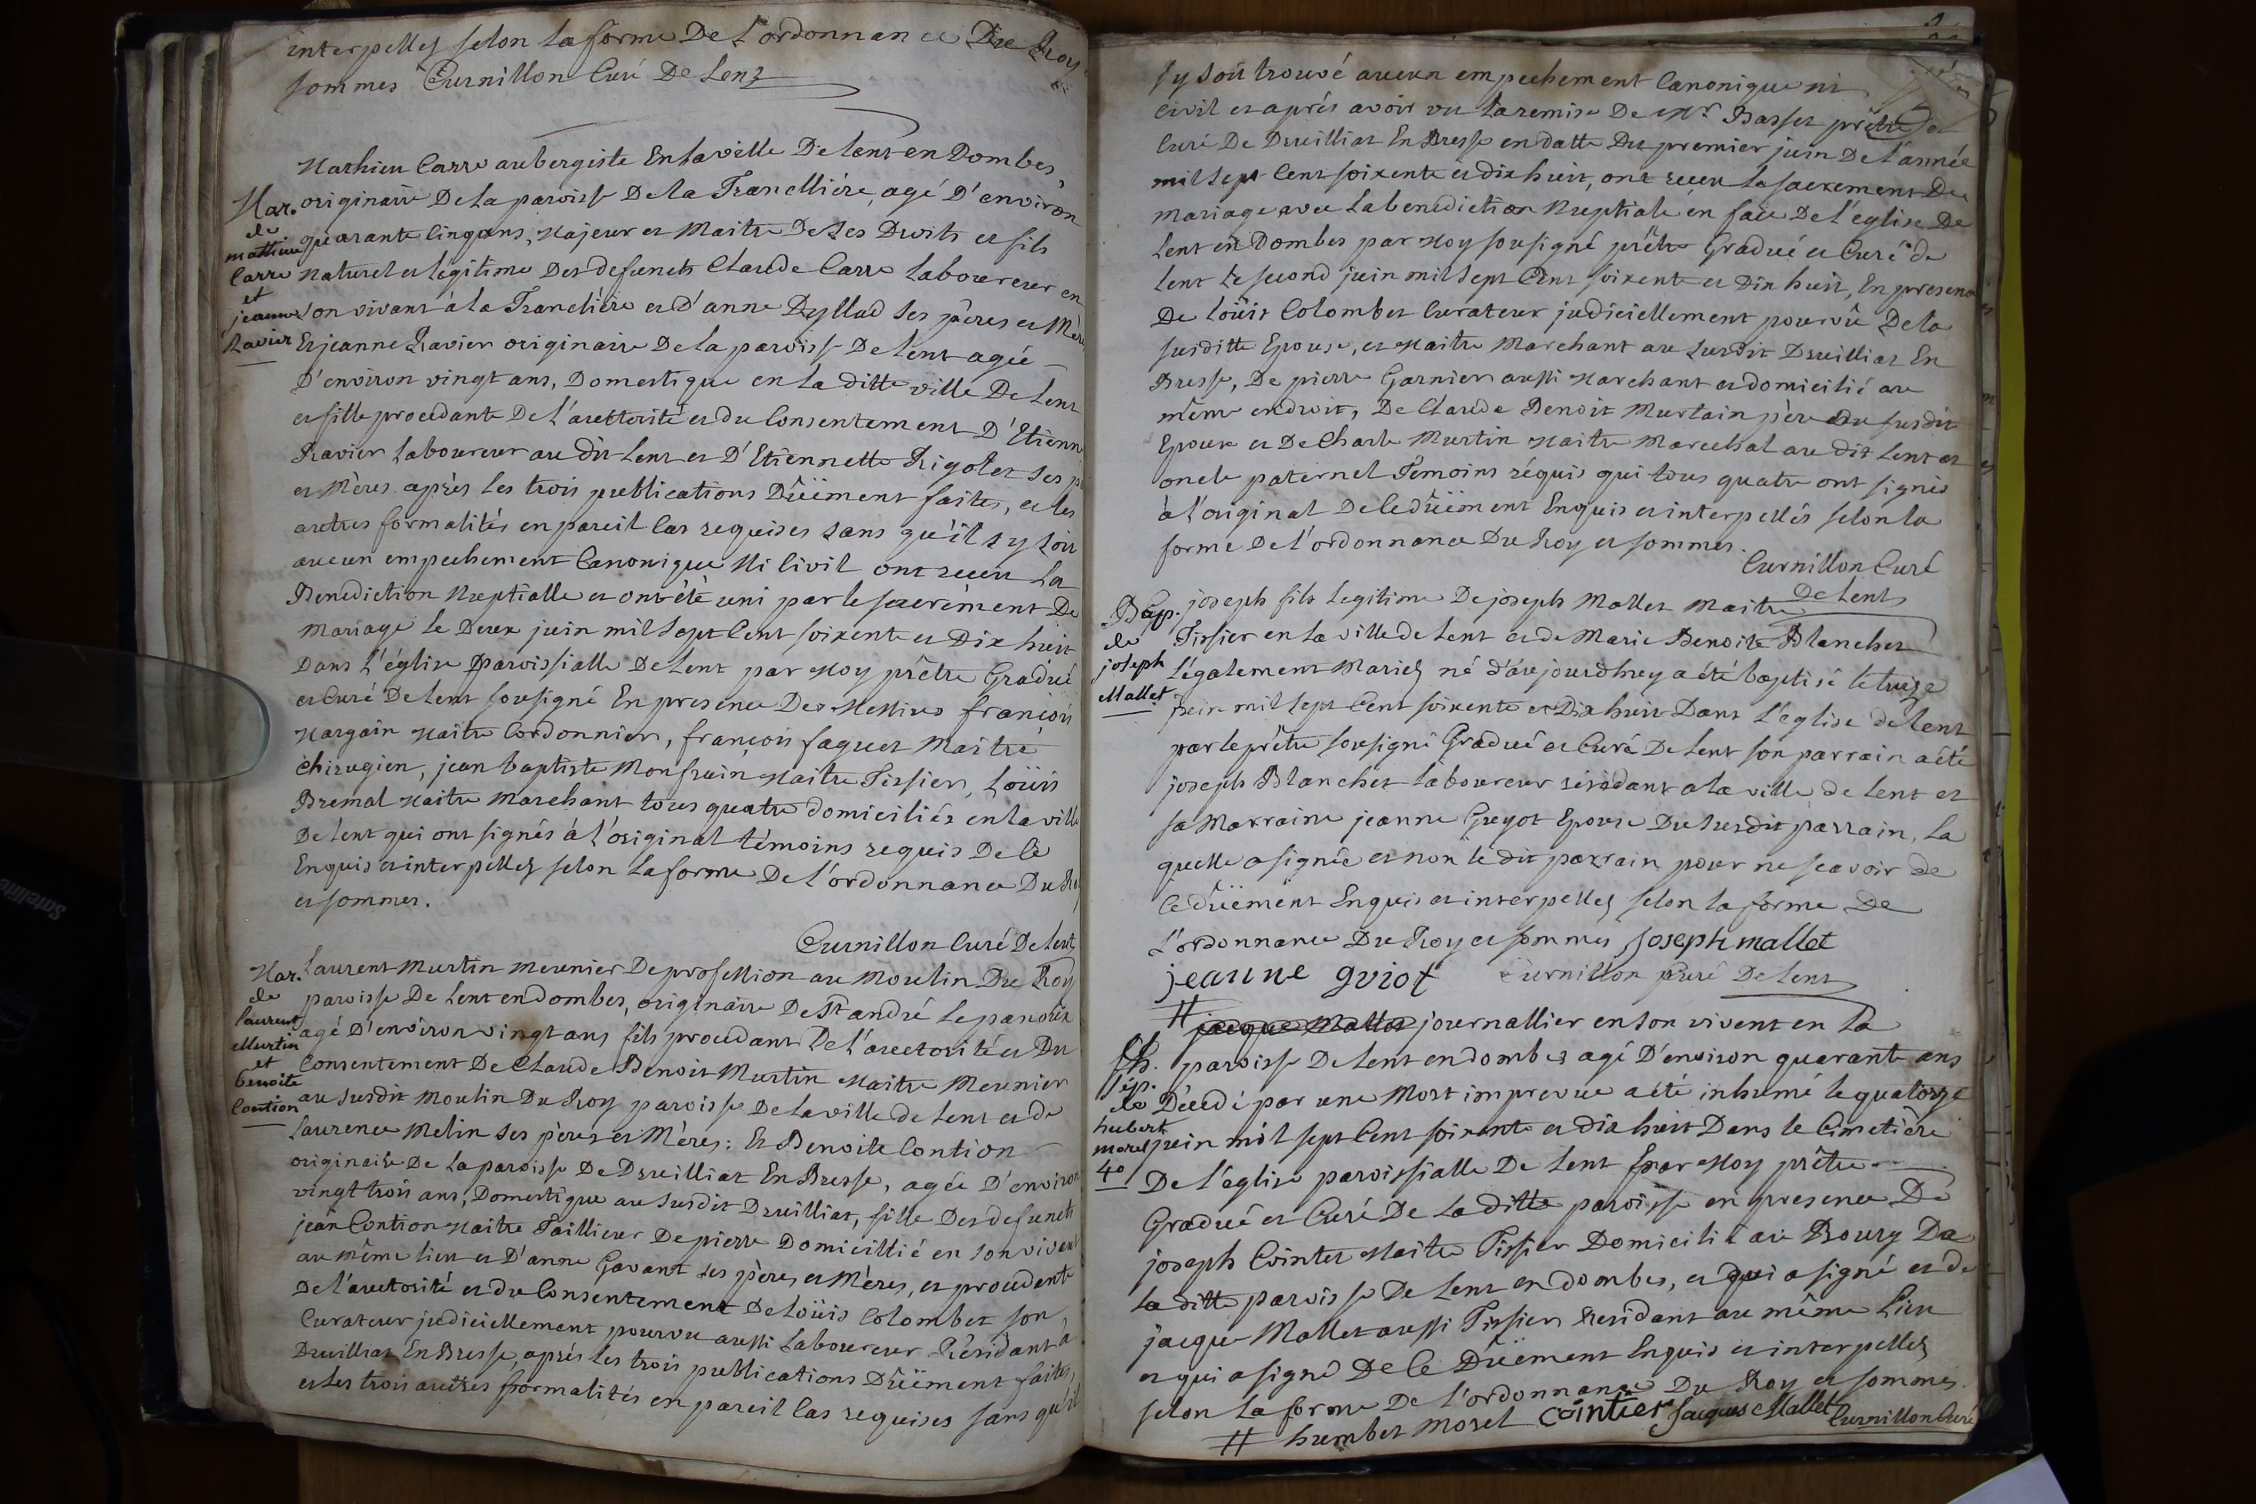 interpellez selon la forme De L'ordonnance Du Roy
sommes Curnillon Curé De Lent
Mathieu Carre aubergiste En la ville De lent en Dombes,
Mar. originaire De la paroisse De la Tranclliére, agé D'environ
de
mathieu quarante Cinq ans, Majeur et Maitre De Ses Droits et fils
Carre naturel et légitime Des defunets Claude Carre laboureur en
et
jeanne son vivant à la Tranclière et d'anne Dyllad Ses pères et Mère
Ravier Et jeanne Ravier originaire De la paroisse De lent agée
D'environ vingt ans, Domestique en la ditte ville De Lent
et fille procedante De l'auttorité et du Consentement D'Etienne
Ravier laboureur au dit Lent et D'Etiennette Rigolet Ses
et Mères après les trois publications Dûëment faites, et les
autres formalités en pareil Cas requises sans qu'il s'y soit
aucun empechement Canonique Ni Civil ont receu la
Benediction Nuptialle et ont été uni par le sacrément De
Mariage le Deux juin mil Sept Cent soixente et Dix huit
Dans l'église paroissialle De lent par Moy prêtre Gradué
et Curé De lent sousigné En presence Des Messires françois
Margain Maitre Cordonnier, françois faquet Maitre
Chirugien, jean baptiste Monfrain Maitre Tissier, Loüis
Bremal Maitre Marchant tous quatre domiciliés en la ville
De lent qui ont signés à l'original témoins requis De Cé
Enquis et interpellez selon la forme De l'ordonnance Du Roy
et sommes.
Curnillon Curé De Lent
Mar. Laurent Murtin meunier De profession au Moulin Du Roy
de paroisse De Lent en dombes, originaire De St andré le panoux
laurent agé D'environ vingt ans fils procedant De l'auctorité et Du
Murtin
et Consentement De Claude Benoit Murtin Maitre Meunier
benoite au susdit Moulin Du Roy paroisse De la ville de lent et de
Contion Laurence Melin Ses pères et Mères : Et Benoite Contion
originaire De la paroisse De Druilliat En Bresse, agée D'environ
vingt trois ans, Domestique au Susdit Druilliat, fille Des defunets
jean Contion Maitre Taillieur De pierre Domicillié en son vivent
au même lieu et D'anne Gavant Ses pères et Mères, et procedante
De l'auctorité et du Consentement De Loüis Colombet son
Curateur judiciellement pourvu aussi Laboureur Résidant à
Druilliat En Bresse, après les trois publications Dûëment faites,
et les trois autres formalités en pareil Cas requises sans qu'il
s'y soit trouvé aucun empechement Canonique ni
Civil et aprés avoir vu la remise De Mr. Basset prêtre et
Curé De Druilliat En Bresse en datte Du premier juin De l'année
mil sept Cent soixente et dix huit, ont receu la sacrement De
mariage avec la benediction Nuptiale en face De l'église De
Lent en Dombes par Moy sousigné prêtre Gradué et Curé de
Lent Le second juin mil sept Cent soixente et Dix huit, En presence
De Loüis Colombet Curateur judiciellement pourvû De la
susditte Epouse, et Maitre Marchant au susdit Druilliat En
Bresse, De pierre Garnier aussi Marchant et domicilié au
même endroit, De Claude Benoit Murtain père du susdit
Epoux et De Charle Murtin Maitre Marechal au dit Lent et
oncle paternel Témoins réquis qui tous quatre ont signés
à l'original De Ce dûëment Enquis et interpellés selon la
forme De l'ordonnance Du Roy et sommes.
Curnillon Curé
De Lent
Bap. joseph fils Legitime De joseph Mallet Maitre
de Tissier en la ville de Lent et de Marie Benoite Blanchet
joseph Légalement Mariez né d'aujourdhuy a été baptisé le treize
Mallet juin mil sept Cent soixente et Dix huit Dans L'église de Lent
par le prêtre sousigné Gradué et Curé De Lent son parrain a été
joseph Blanchet Laboureur résidant a la ville de Lent et
sa Marraine jeanne Guyot Epouse Du susdit parrain, La
quelle a signée et non le dit parrain pour ne scavoir de
Ce dûëment Enquis et interpellez selon la forme De
L'ordonnance Du Roy et sommes joseph mallet
jeanne guiot Curnillon Curé De Lent
# jacque Mallet journallier en son vivent en La
Sép. paroisse De Lent en dombes agé D'environ quarante ans
de Décedé par une Mort imprevue a été inhumé le quatorze
hubert
morel juin mil sept Cent soixante et dix huit Dans le Cimetière
40 De l'église paroissialle De Lent par Moy prêtre
Gradué et Curé De La ditte paroisse en presence De
joseph Cointet Maitre Tissier Domicilié au Bourg Da
La ditte paroisse De Lent en dombes, et qui a signé et de
jacque Mallet aussi Tissier Residant au même Lieu
et qui a signé De Ce Dûëment Enquis et interpellez
selon La forme De l'ordonnance Du Roy et sommes.
# humbet Morel Cointier Jacques Mallet Curnillon Curé